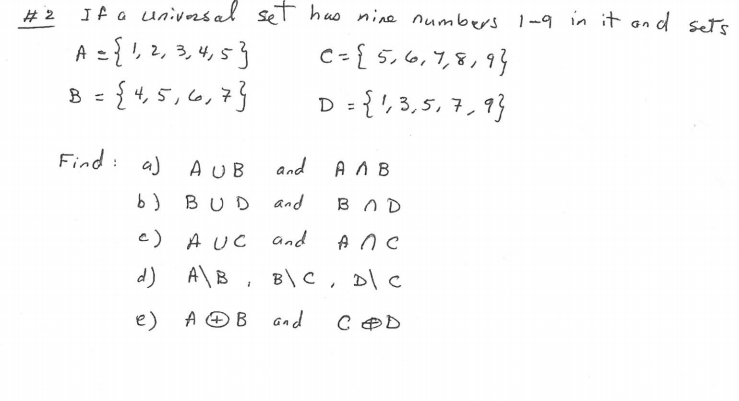 #2 If a universal set has nine numbers 1-9 in it and sets
A = {1, 2, 3, 4, 5} C = {5, 6, 7, 8, 9}
B = {4, 5, 6, 7} D = {1, 3, 5, 7, 9}
Find: a) A ∪ B and A ∩ B
b) B ∪ D and B ∩ D
c) A ∪ C and A ∩ C
d) A\B, B\C, D\C
e) A ⊕ B and C ⊕ D